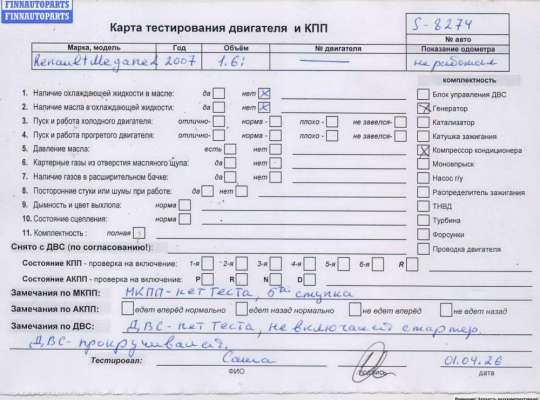 FINNAUTOPARTS
FINNAUTOPARTS
Карта тестирования двигателя и КПП
S-8274
№ авто
Марка, модель Год Объём № двигателя Показание одометра
Renault Megane II 2007 1.6i не рабочий
комплектность
1. Наличие охлаждающей жидкости в масле: да нет X
Блок управления ДВС
2. Наличие масла в охлаждающей жидкости: да нет X
X Генератор
3. Пуск и работа холодного двигателя: отлично- норма - плохо - не завелся-
Катализатор
4. Пуск и работа прогретого двигателя: отлично- норма - плохо - не завелся-
Катушка зажигания
5. Давление масла: есть нет
X Компрессор кондиционера
6. Картерные газы из отверстия масляного щупа: да нет
Моновпрыск
7. Наличие газов в расширительном бачке: да нет
Насос г/у
8. Посторонние стуки или шумы при работе: да нет
Распределитель зажигания
9. Дымность и цвет выхлопа: норма
ТНВД
10. Состояние сцепления: норма
Турбина
11. Комплектность : полная
Форсунки
Снято с ДВС (по согласованию!):
Проводка двигателя
Состояние КПП - проверка на включение: 1-я 2-я 3-я 4-я 5-я 6-я R
Состояние АКПП - проверка на включение: P R N D
Замечания по МКПП: МКПП-нет теста, 6ая ступка
Замечания по АКПП: едет вперёд нормально едет назад нормально не едет вперёд не едет назад
Замечания по ДВС: ДВС-нет теста, не включался стартер.
ДВС-прокручивался.
Тестировал: Саша 01.04.26
ФИО подпись дата